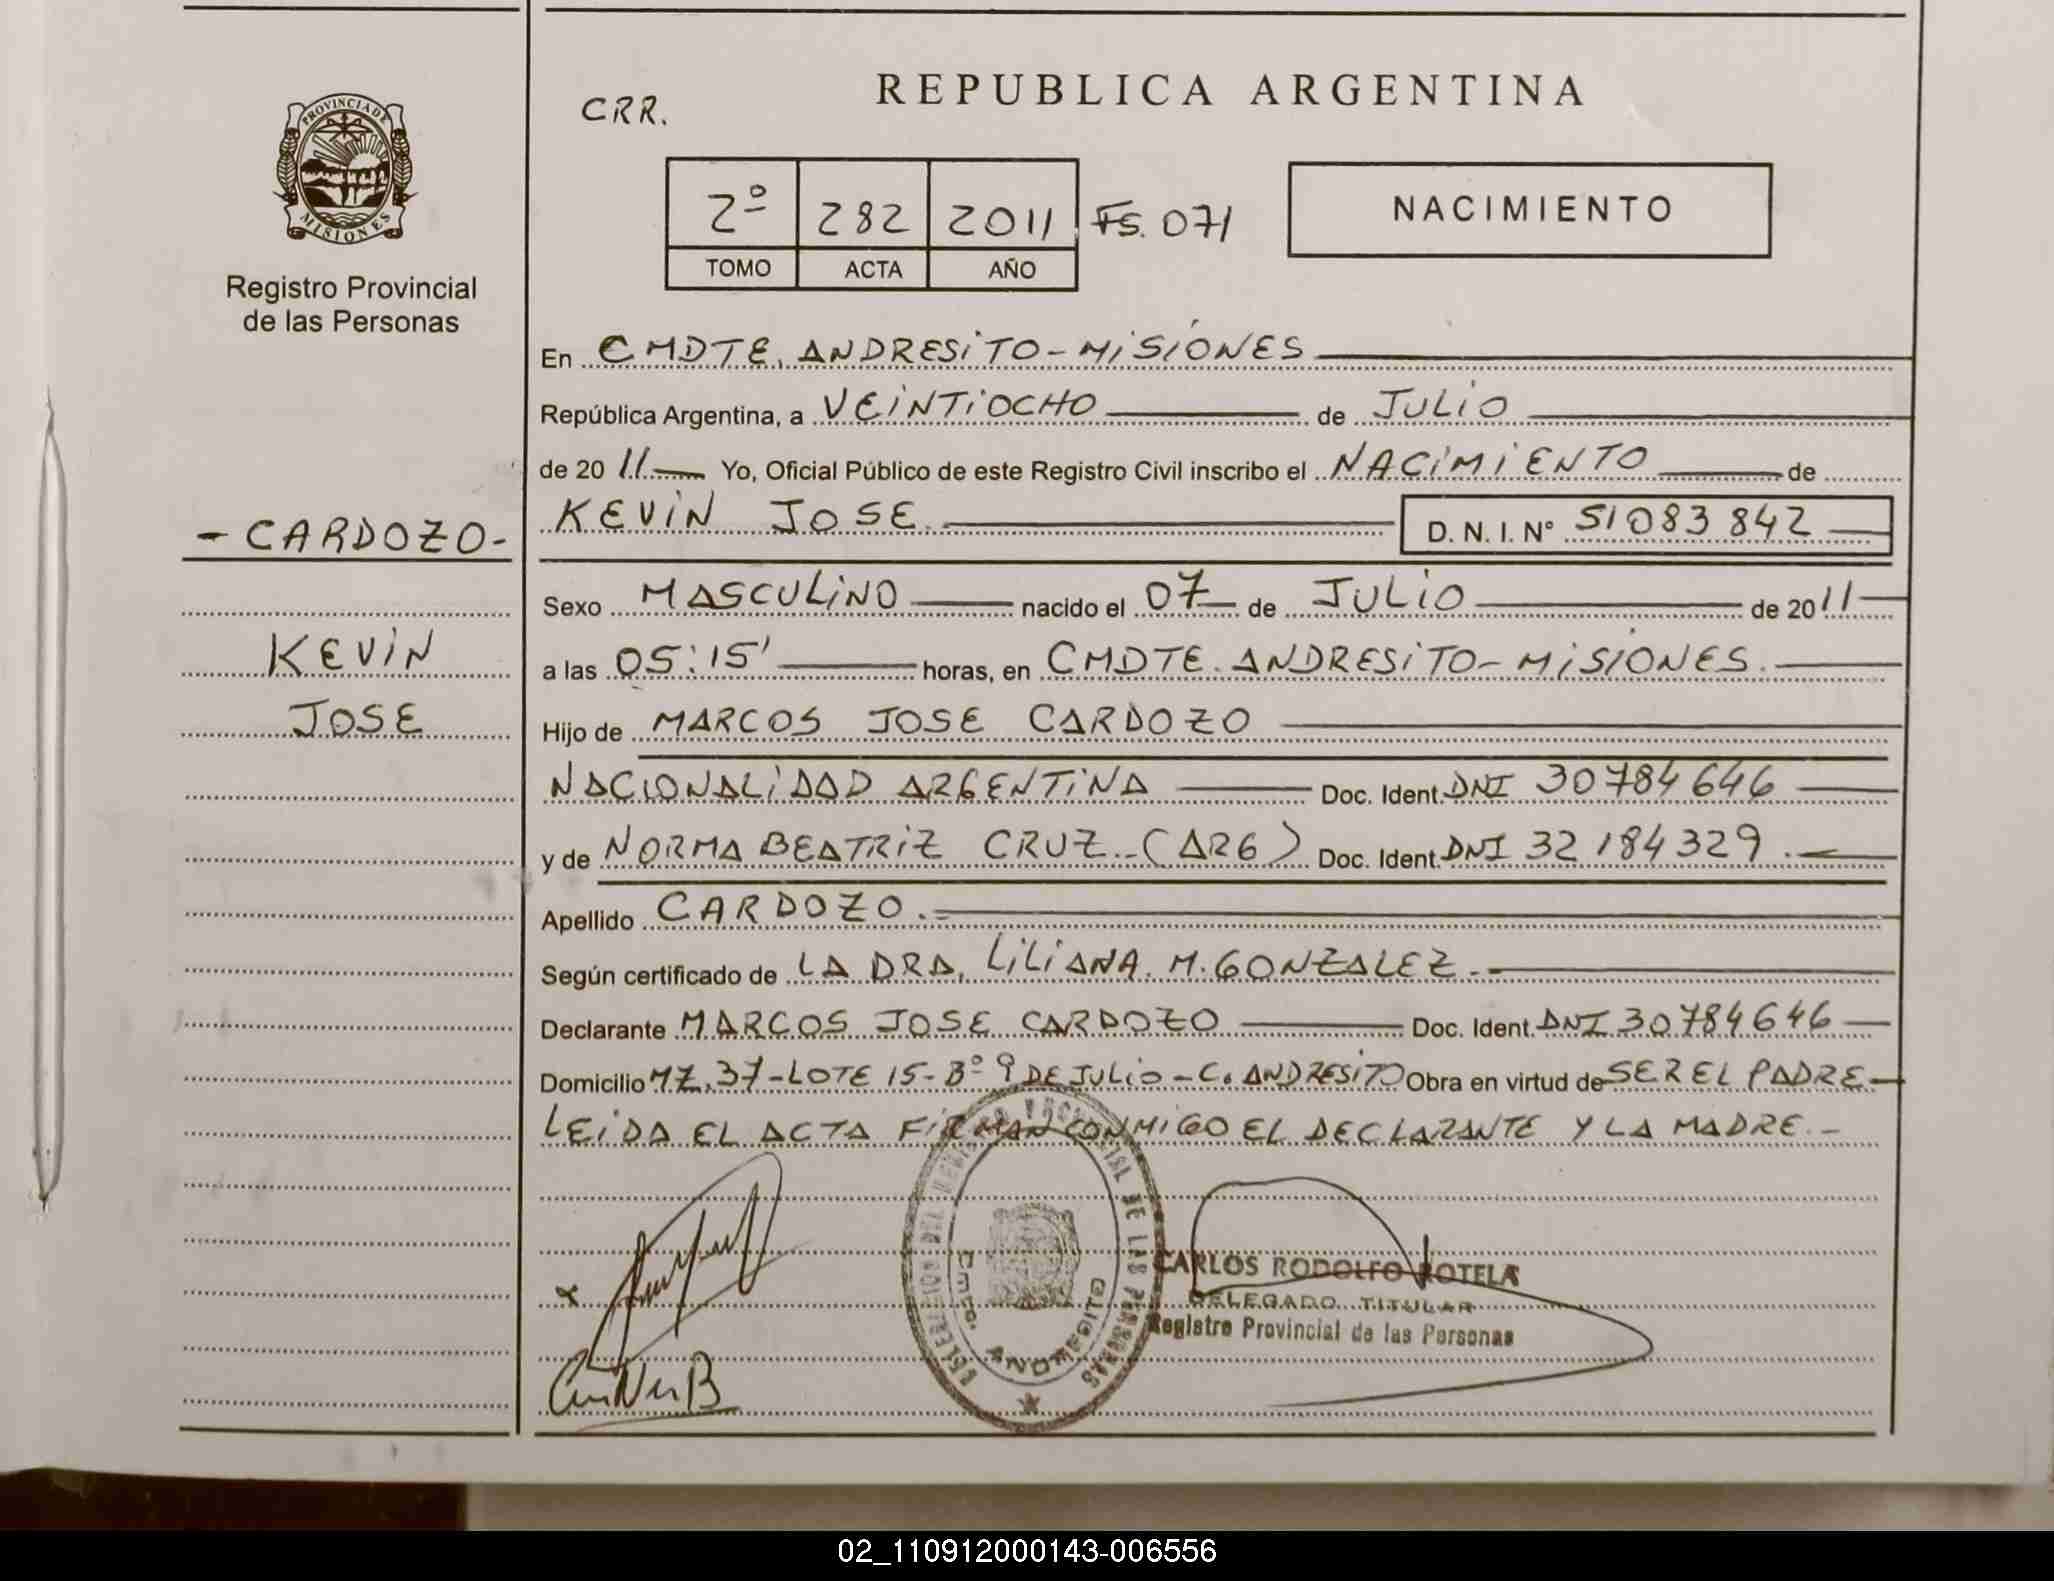 PROVINCIA DE
MISIONES
Registro Provincial
de las Personas
- CARDOZO -
KEVIN
JOSE
CRR.
REPUBLICA ARGENTINA
2º 282 2011 Fs. 071
TOMO ACTA AÑO
NACIMIENTO
En CMDTE. ANDRESITO - MISIONES
República Argentina, a VEINTIOCHO de JULIO
de 2011 Yo, Oficial Público de este Registro Civil inscribo el NACIMIENTO de
KEVIN JOSE D. N. I. Nº 51083842
Sexo MASCULINO nacido el 07 de JULIO de 2011
a las 05:15' horas, en CMDTE. ANDRESITO - MISIONES.
Hijo de MARCOS JOSE CARDOZO
NACIONALIDAD ARGENTINA Doc. Ident. DNI 30784646
y de NORMA BEATRIZ CRUZ - (ARG) Doc. Ident. DNI 32184329.
Apellido CARDOZO.=
Según certificado de LA DRA. LILIANA. M. GONZALEZ.-
Declarante MARCOS JOSE CARDOZO Doc. Ident. DNI 30784646
Domicilio MZ. 37 - LOTE 15 - Bº 9 DE JULIO - C. ANDRESITO Obra en virtud de SER EL PADRE
LEIDA EL ACTA FIRMAN CONMIGO EL DECLARANTE Y LA MADRE.-
DEL REGISTRO PROVINCIAL DE LAS PERSONAS
ANDRESITO
CARLOS RODOLFO ROTELA
DELEGADO TITULAR
Registro Provincial de las Personas
02_110912000143-006556